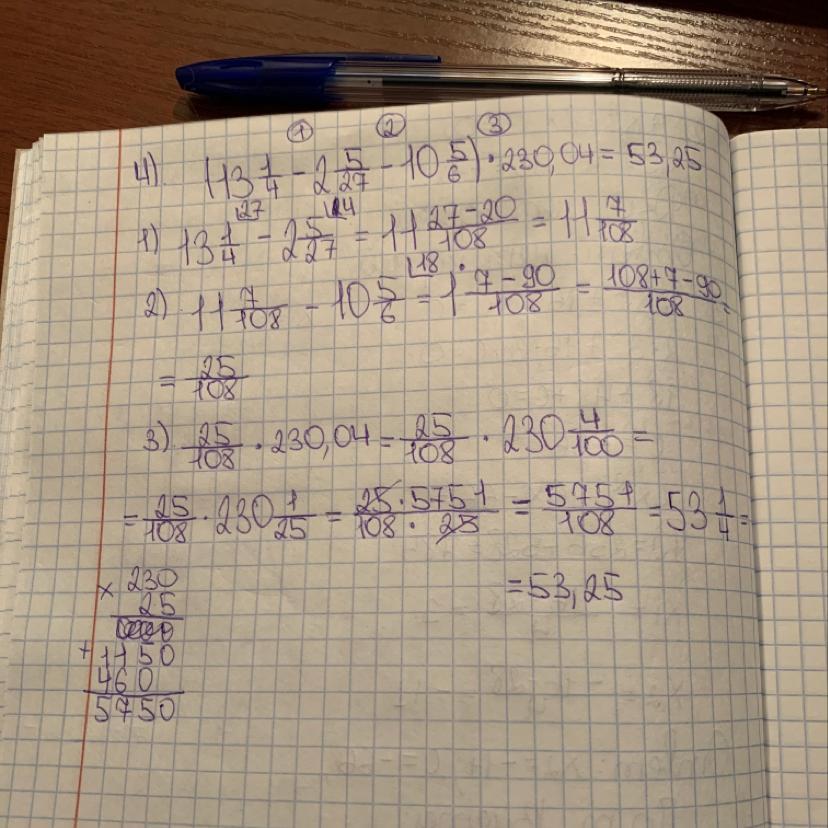 ① ② ③
4) (13 1/4 - 2 5/27 - 10 5/6) · 230,04 = 53,25
1) 13 1/4 - 2 5/27 = 11 27-20/108 = 11 7/108
2) 11 7/108 - 10 5/6 = 1 7-90/108 = 108+7-90/108 =
= 25/108
3) 25/108 · 230,04 = 25/108 · 230 4/100 =
= 25/108 · 230 1/25 = 25·5751/108·25 = 5751/108 = 53 1/4 =
= 53,25
× 230
25
+ 1150
460
5750